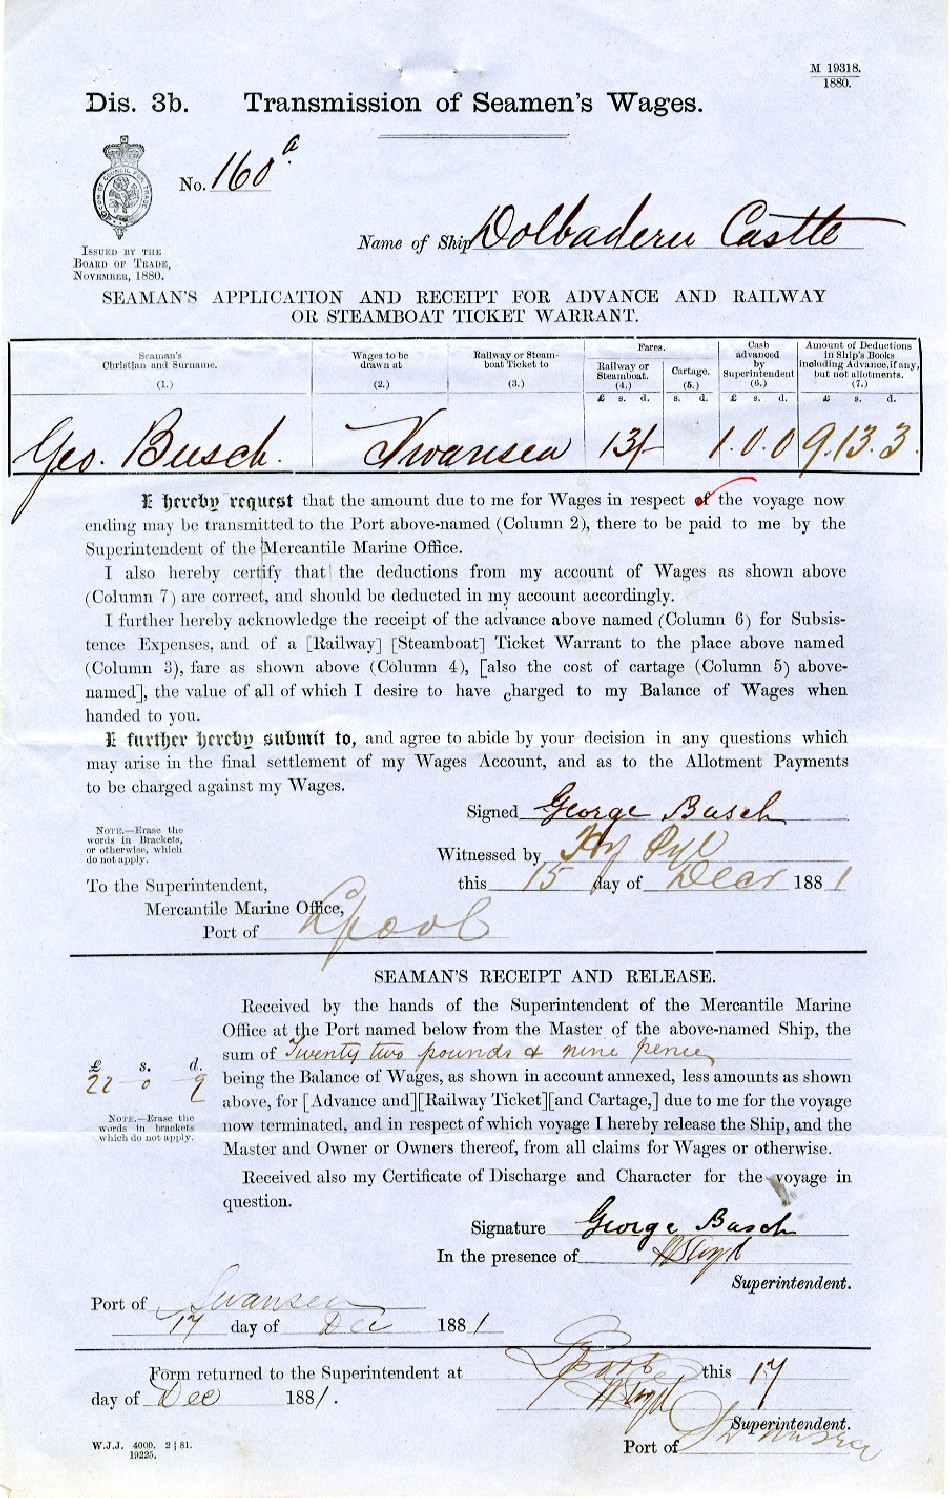 M 19318.
1880.
Dis. 3b. Transmission of Seamen's Wages.
No. 160 a
Name of Ship Dolbadern Castle
ISSUED BY THE
BOARD OF TRADE,
NOVEMBER, 1880.
SEAMAN'S APPLICATION AND RECEIPT FOR ADVANCE AND RAILWAY
OR STEAMBOAT TICKET WARRANT.
Seaman's Christian and Surname. (1.)
Wages to be drawn at (2.)
Railway or Steamboat Ticket to (3.)
Fares.
Railway or Steamboat. (4.)
Cartage. (5.)
Cash advanced by Superintendent (6.)
Amount of Deductions in Ship's Books including Advance, if any, but not allotments. (7.)
£ s. d. s. d. £ s. d. £ s. d.
Geo. Busch. Swansea 13/- 1.0.0 9.13.3
I hereby request that the amount due to me for Wages in respect of the voyage now
ending may be transmitted to the Port above-named (Column 2), there to be paid to me by the
Superintendent of the Mercantile Marine Office.
I also hereby certify that the deductions from my account of Wages as shown above
(Column 7) are correct, and should be deducted in my account accordingly.
I further hereby acknowledge the receipt of the advance above named (Column 6) for Subsis-
tence Expenses, and of a [Railway] [Steamboat] Ticket Warrant to the place above named
(Column 3), fare as shown above (Column 4), [also the cost of cartage (Column 5) above-
named], the value of all of which I desire to have charged to my Balance of Wages when
handed to you.
I further hereby submit to, and agree to abide by your decision in any questions which
may arise in the final settlement of my Wages Account, and as to the Allotment Payments
to be charged against my Wages.
Signed George Busch
NOTE.—Erase the
words in Brackets,
or otherwise, which
do not apply.
Witnessed by
this 15 day of Decr 1881
To the Superintendent,
Mercantile Marine Office,
Port of Lpool
SEAMAN'S RECEIPT AND RELEASE.
Received by the hands of the Superintendent of the Mercantile Marine
Office at the Port named below from the Master of the above-named Ship, the
sum of Twenty two pounds & nine pence
£ s. d.
22 0 9
being the Balance of Wages, as shown in account annexed, less amounts as shown
above, for [Advance and][Railway Ticket][and Cartage,] due to me for the voyage
now terminated, and in respect of which voyage I hereby release the Ship, and the
Master and Owner or Owners thereof, from all claims for Wages or otherwise.
NOTE.—Erase the
words in brackets
which do not apply.
Received also my Certificate of Discharge and Character for the voyage in
question.
Signature George Busch
In the presence of
Superintendent.
Port of Swansea
17 day of Dec 1881
Form returned to the Superintendent at this 17
day of Dec 1881.
Superintendent.
Port of Swansea
W.J.J. 4000. 2|81.
19225.